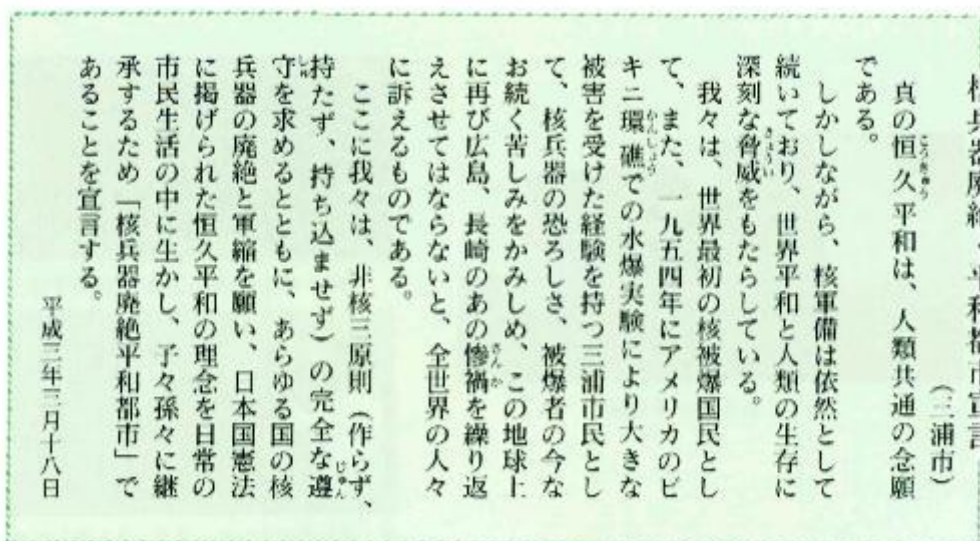 核兵器廃絶平和都市宣言
（三浦市）
真の恒久平和は、人類共通の念願
である。
しかしながら、核軍備は依然として
続いており、世界平和と人類の生存に
深刻な脅威をもたらしている。
我々は、世界最初の核被爆国民とし
て、また、一九五四年にアメリカのビ
キニ環礁での水爆実験により大きな
被害を受けた経験を持つ三浦市民とし
て、核兵器の恐ろしさ、被爆者の今な
お続く苦しみをかみしめ、この地球上
に再び広島、長崎のあの惨禍を繰り返
えさせてはならないと、全世界の人々
に訴えるものである。
ここに我々は、非核三原則（作らず、
持たず、持ち込ませず）の完全な遵
守を求めるとともに、あらゆる国の核
兵器の廃絶と軍縮を願い、日本国憲法
に掲げられた恒久平和の理念を日常の
市民生活の中に生かし、子々孫々に継
承するため「核兵器廃絶平和都市」で
あることを宣言する。
平成三年三月十八日